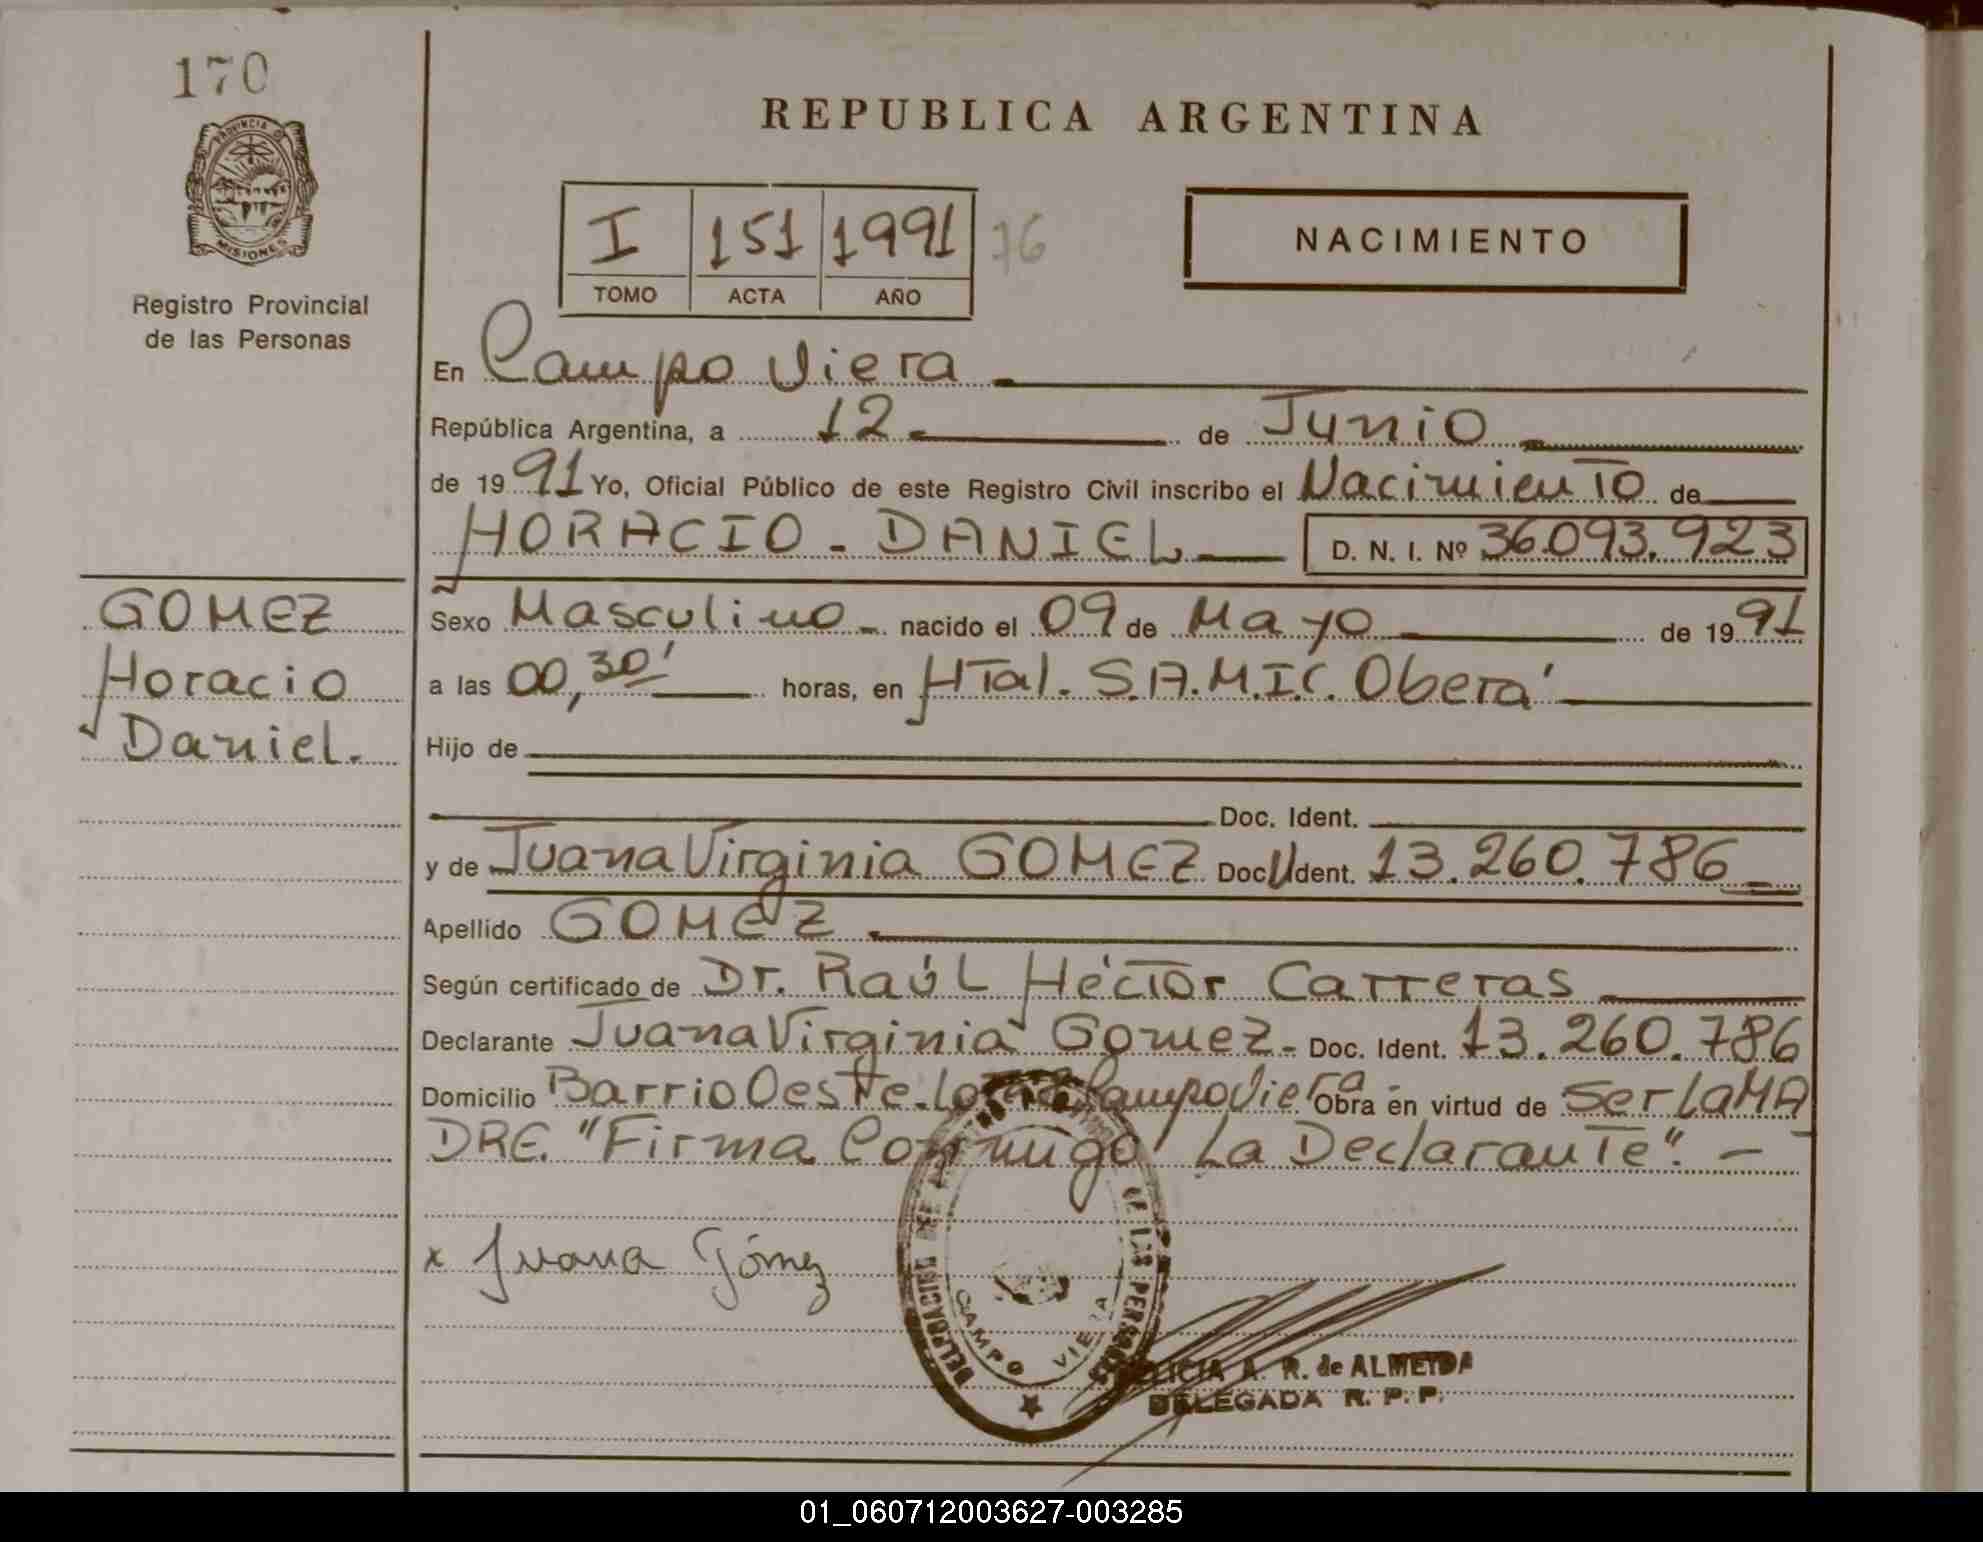 170
PROVINCIA DE
MISIONES
Registro Provincial
de las Personas
REPUBLICA ARGENTINA
I 151 1991 76
TOMO ACTA AÑO
NACIMIENTO
En Campo Viera
República Argentina, a 12 de Junio
de 1991 Yo, Oficial Público de este Registro Civil inscribo el Nacimiento de
HORACIO - DANIEL D. N. I. Nº 36.093.923
GOMEZ
Horacio
Daniel.
Sexo Masculino nacido el 09 de Mayo de 1991
a las 00,30' horas, en HTal. S.A.M.I.C. Oberá
Hijo de
Doc. Ident.
y de Juana Virginia GOMEZ Doc. Ident. 13.260.786
Apellido GOMEZ
Según certificado de Dr. Raúl Héctor Carreras
Declarante Juana Virginia Gomez - Doc. Ident. 13.260.786
Domicilio Barrio Oeste. Campo Viera - Obra en virtud de Ser La MA
DRE. "Firma Conmigo La Declarante". -
x Juana Gómez
DE LAS PERSONAS
CAMPO VIERA
A. R. de ALMEIDA
DELEGADA R. P. P.
01_060712003627-003285